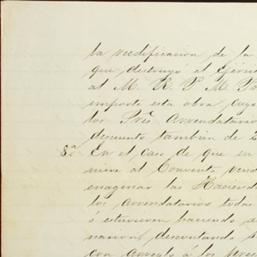 la reedificacion de la
que destruyó el Ejérci
al M. R. P. M.
importe esta obra cuyo
los Pres. Arrendatario
descuento tambien de
8ª. En el caso de que en
niere al Convento vend
enagenar las Haciend
los arrendatarios todav
ó estuvieren haciendo e
nacion, descontando
con arreglo á los